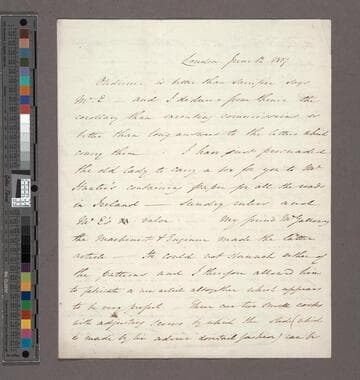 London June 12 1817
Obedience is better than Sacrifice says
Mr. E — and I deduce from thence the
corollary that executing commissions is
better than long answers to the letters which
convey them I have just persuaded
the old Lady to carry a box for you to Mr
containing paper for all the roads
in Ireland — Sundry rulers and
Mr E's razor My friend Mr Galloway
the Machinist & Engineer made the latter
article — He could not Staunch either of
the and I therefore allowed him
to fabricate a new article altogether which appears
to be very perfect. There are two small cocks
with adjusting screws by which the slide (which
is made by his advice dovetail fashion) can be